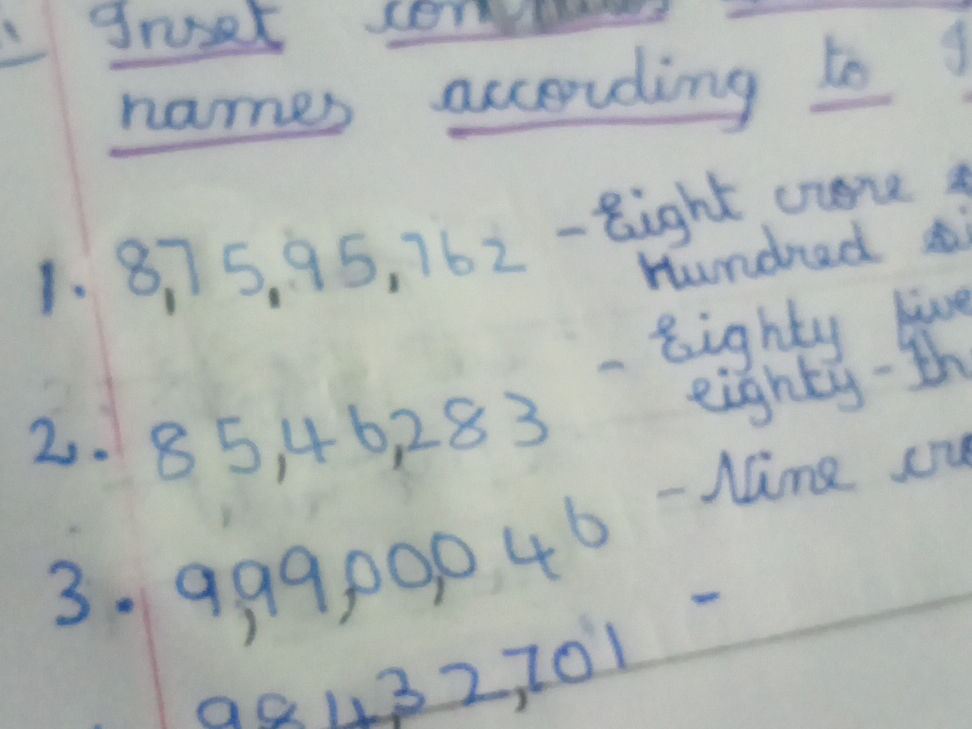 Inset
names according to
1. 8,75,95,762 - Eight crore
Hundred
2. 85,46,283 - Eighty five
eighty-th
3. 9,99,00,046 - Nine cro
98432,701 -